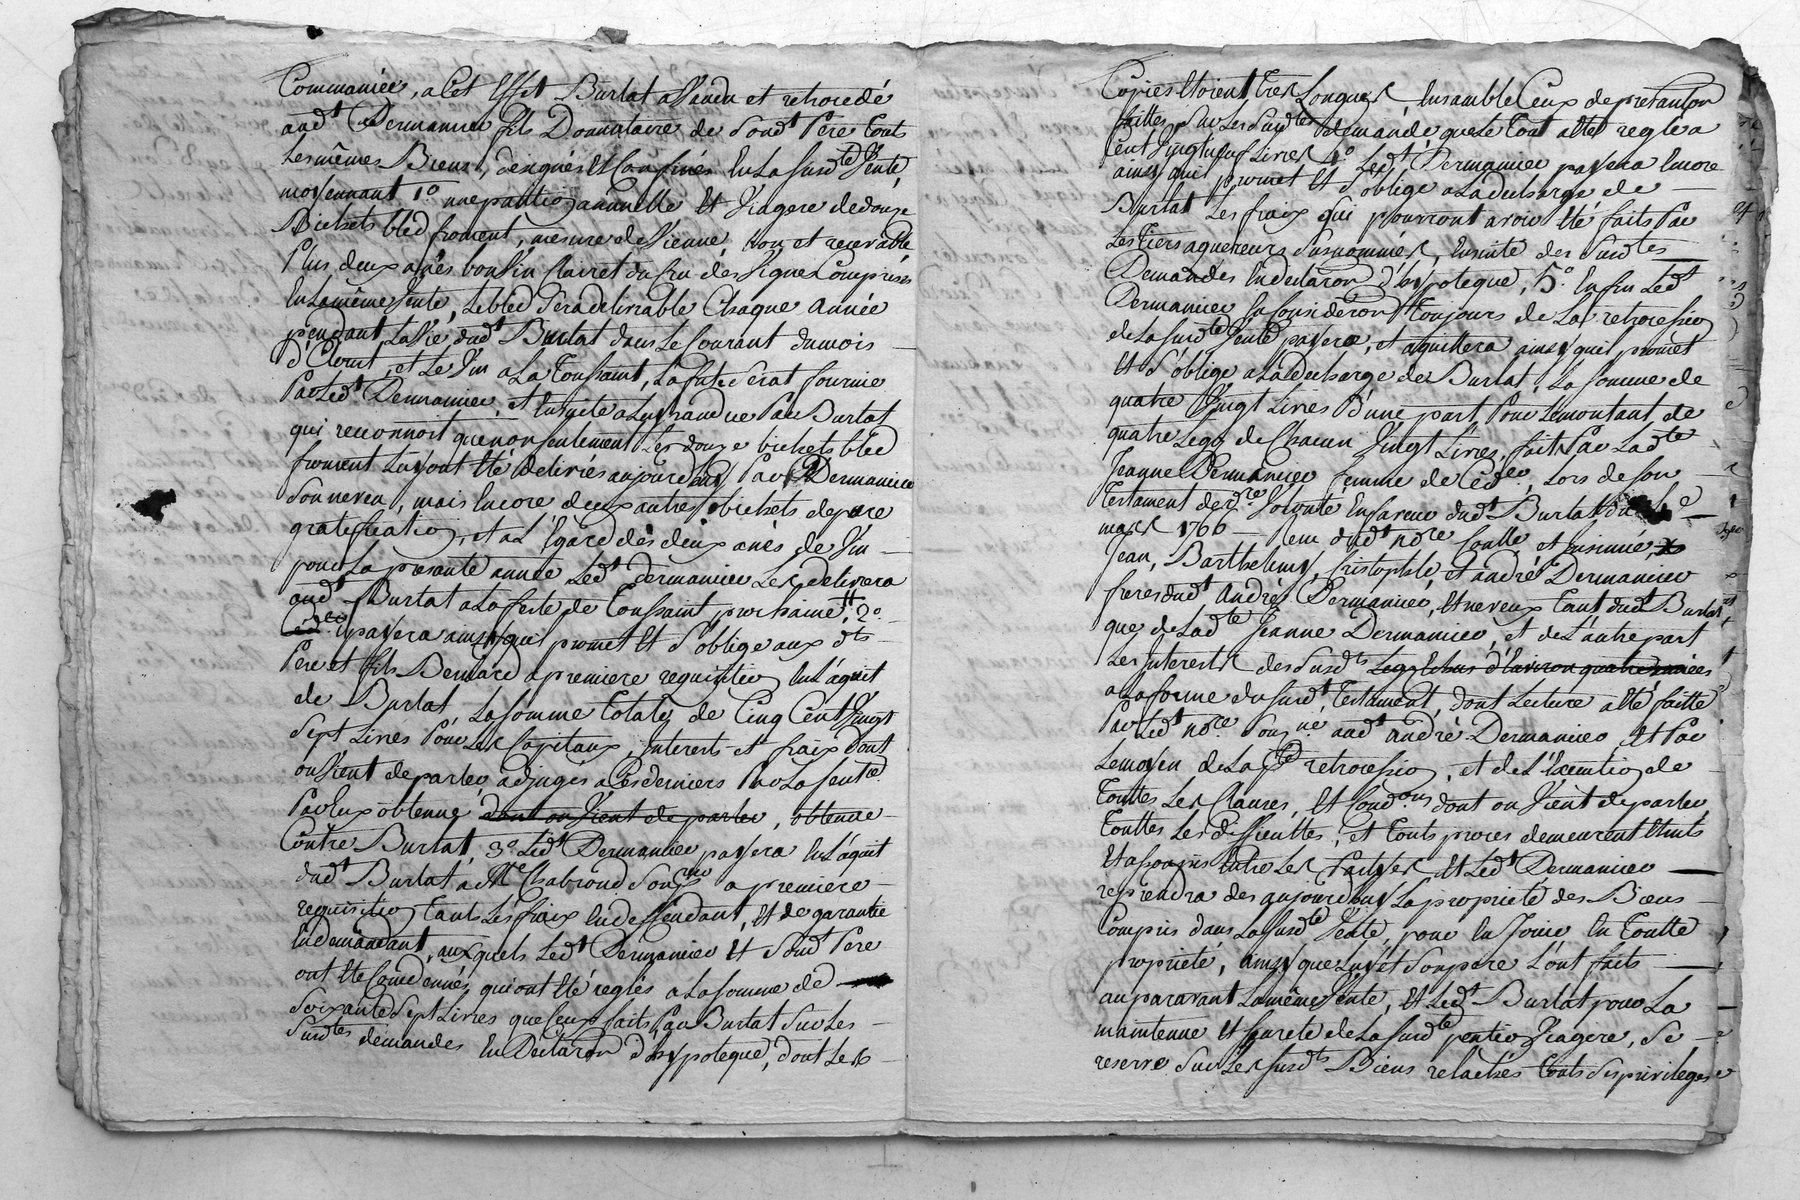 Commaniée, a Cet Effet Burlat a Vendu et retrocedé
aud.t Dermanieu fils Donnataire de Sond.t Pere touts
Les mêmes Biens, designés Et Confinés En La Susd.te Vente,
moyennant 1.o une pention annuelle Et Viagere de douze
Bichets bled froment, mesure de Vienne, bon et recevable
Plus deux anés bon Vin Clairet du Cru des Vignes Comprises
En La même Vente, Le bled Sera delivrable Chaque année
pendant La Vie dud.t Burlat dans Le Courant du mois
d'Aout, et Le Vin a La Toussaint, La futte Serat fournie
Par Led.t Dermanieu, et Ensuite a Luy rendue Par Burlat
qui reconnoit que non Seulement Les douze bichets bled
froment Luy ont Eté delivrés aujourdhuy Par Dermanieu
Son neveu, mais Encore deux autres bichets de pure
gratification, et a L'Egard des deux anés de Vin
pour La presente année Led.t dermanieu Les delivrera
aud.t Burlat a La feste de Toussaint prochaine, 2.o
payera ainsy quil promet Et S'oblige aux d.ts
Pere et fils Bernard a premiere requisition En L'aquit
de Burlat La Somme totale de Cinq Cent Vingt
Sept Livres Pour Les Capitaux, Interests et fraix dont
on Vient de parler, adjugés a Ces derniers Par La Sent.ce
Par Eux obtenue dont on Vient de parler, obtenue
Contre Burlat, 3.o Led.t Dermanieu payera En L'aquit
dud.t Burlat a M.e Chabroud a premiere
requisition tant Les fraix En deffendant, Et de garantie
En demandant, auxquels Led.t Dermanieu Et Sond.t Pere
ont Eté Condemnés, qui ont Eté reglés a La Somme de
Soixante Sept Livres que Ceux faits Par Burlat Sur Les
Susd.tes demandes En Declaraon d'hypoteque, dont Les
Copies Etoient tres Longues Ensamble Ceux de
faittes Sur Les Susd.tes demande que Le tout a Eté reglé a
Cent Vingt neuf Livres 4.o Led.t Dermanieu payera Encore
ainsy quil promet Et S'oblige a La decharge de
Burlat Les fraix qui pourront avoir Eté faits Par
Les tiers aquereurs Susnommés, Ensuite des Susd.tes
Demandes En declaraon d'hypoteque, 5.o Enfin Led.t
Dermanieu En Consideraon toujours de La retrocession
de La Susd.te Vente payera, et aquittera ainsy quil promet
Et S'oblige a La decharge de Burlat La Somme de
quatre Vingt Livres d'une part Pour Le montant de
quatre Legs de Chacun Vingt Livres, fait Par Lad.te
Jeanne Dermanieu femme de Lors de Son
Testament de d.re Volonté En faveur dud.t Burlat du
mars 1766 Reçu dud.t no.re Controllé et Insinué
Jean, Barthelemy, Cristophle, et andré Dermanieu
freres dud.t André Dermanieu, Et neveux tant dud.t Burlat
que de Lad.te Jeanne Dermanieu, et de L'autre part
Les Interests des Susd.ts Legs Echus d'Environ quatre années
a La forme du Susd.t Testament, dont Lecture a Eté faitte
Par Led.t no.re Sousné aud.t andré Dermanieu Et Par
Le moyen de La d.te retrocession, et de L'Exécution de
touttes Les Clauses, Et Condons dont on Vient de parler
touttes Les difficultes, et touts proces demeurent Eteints
Et assoupis Entre Les Parties, Et Led.t Dermanieu
reprendra des aujourdhuy La proprieté des Biens
Compris dans La Susd.te Vente, pour En Jouir En toutte
proprieté, ainsy que Luy et Son pere L'ont faits
au paravant La même Vente, Et Led.t Burlat pour La
maintenue Et Sureté de La Susd.te pention Viagere, Se
reserve Sur Les Susd.ts Biens relachés touts Ses privileges